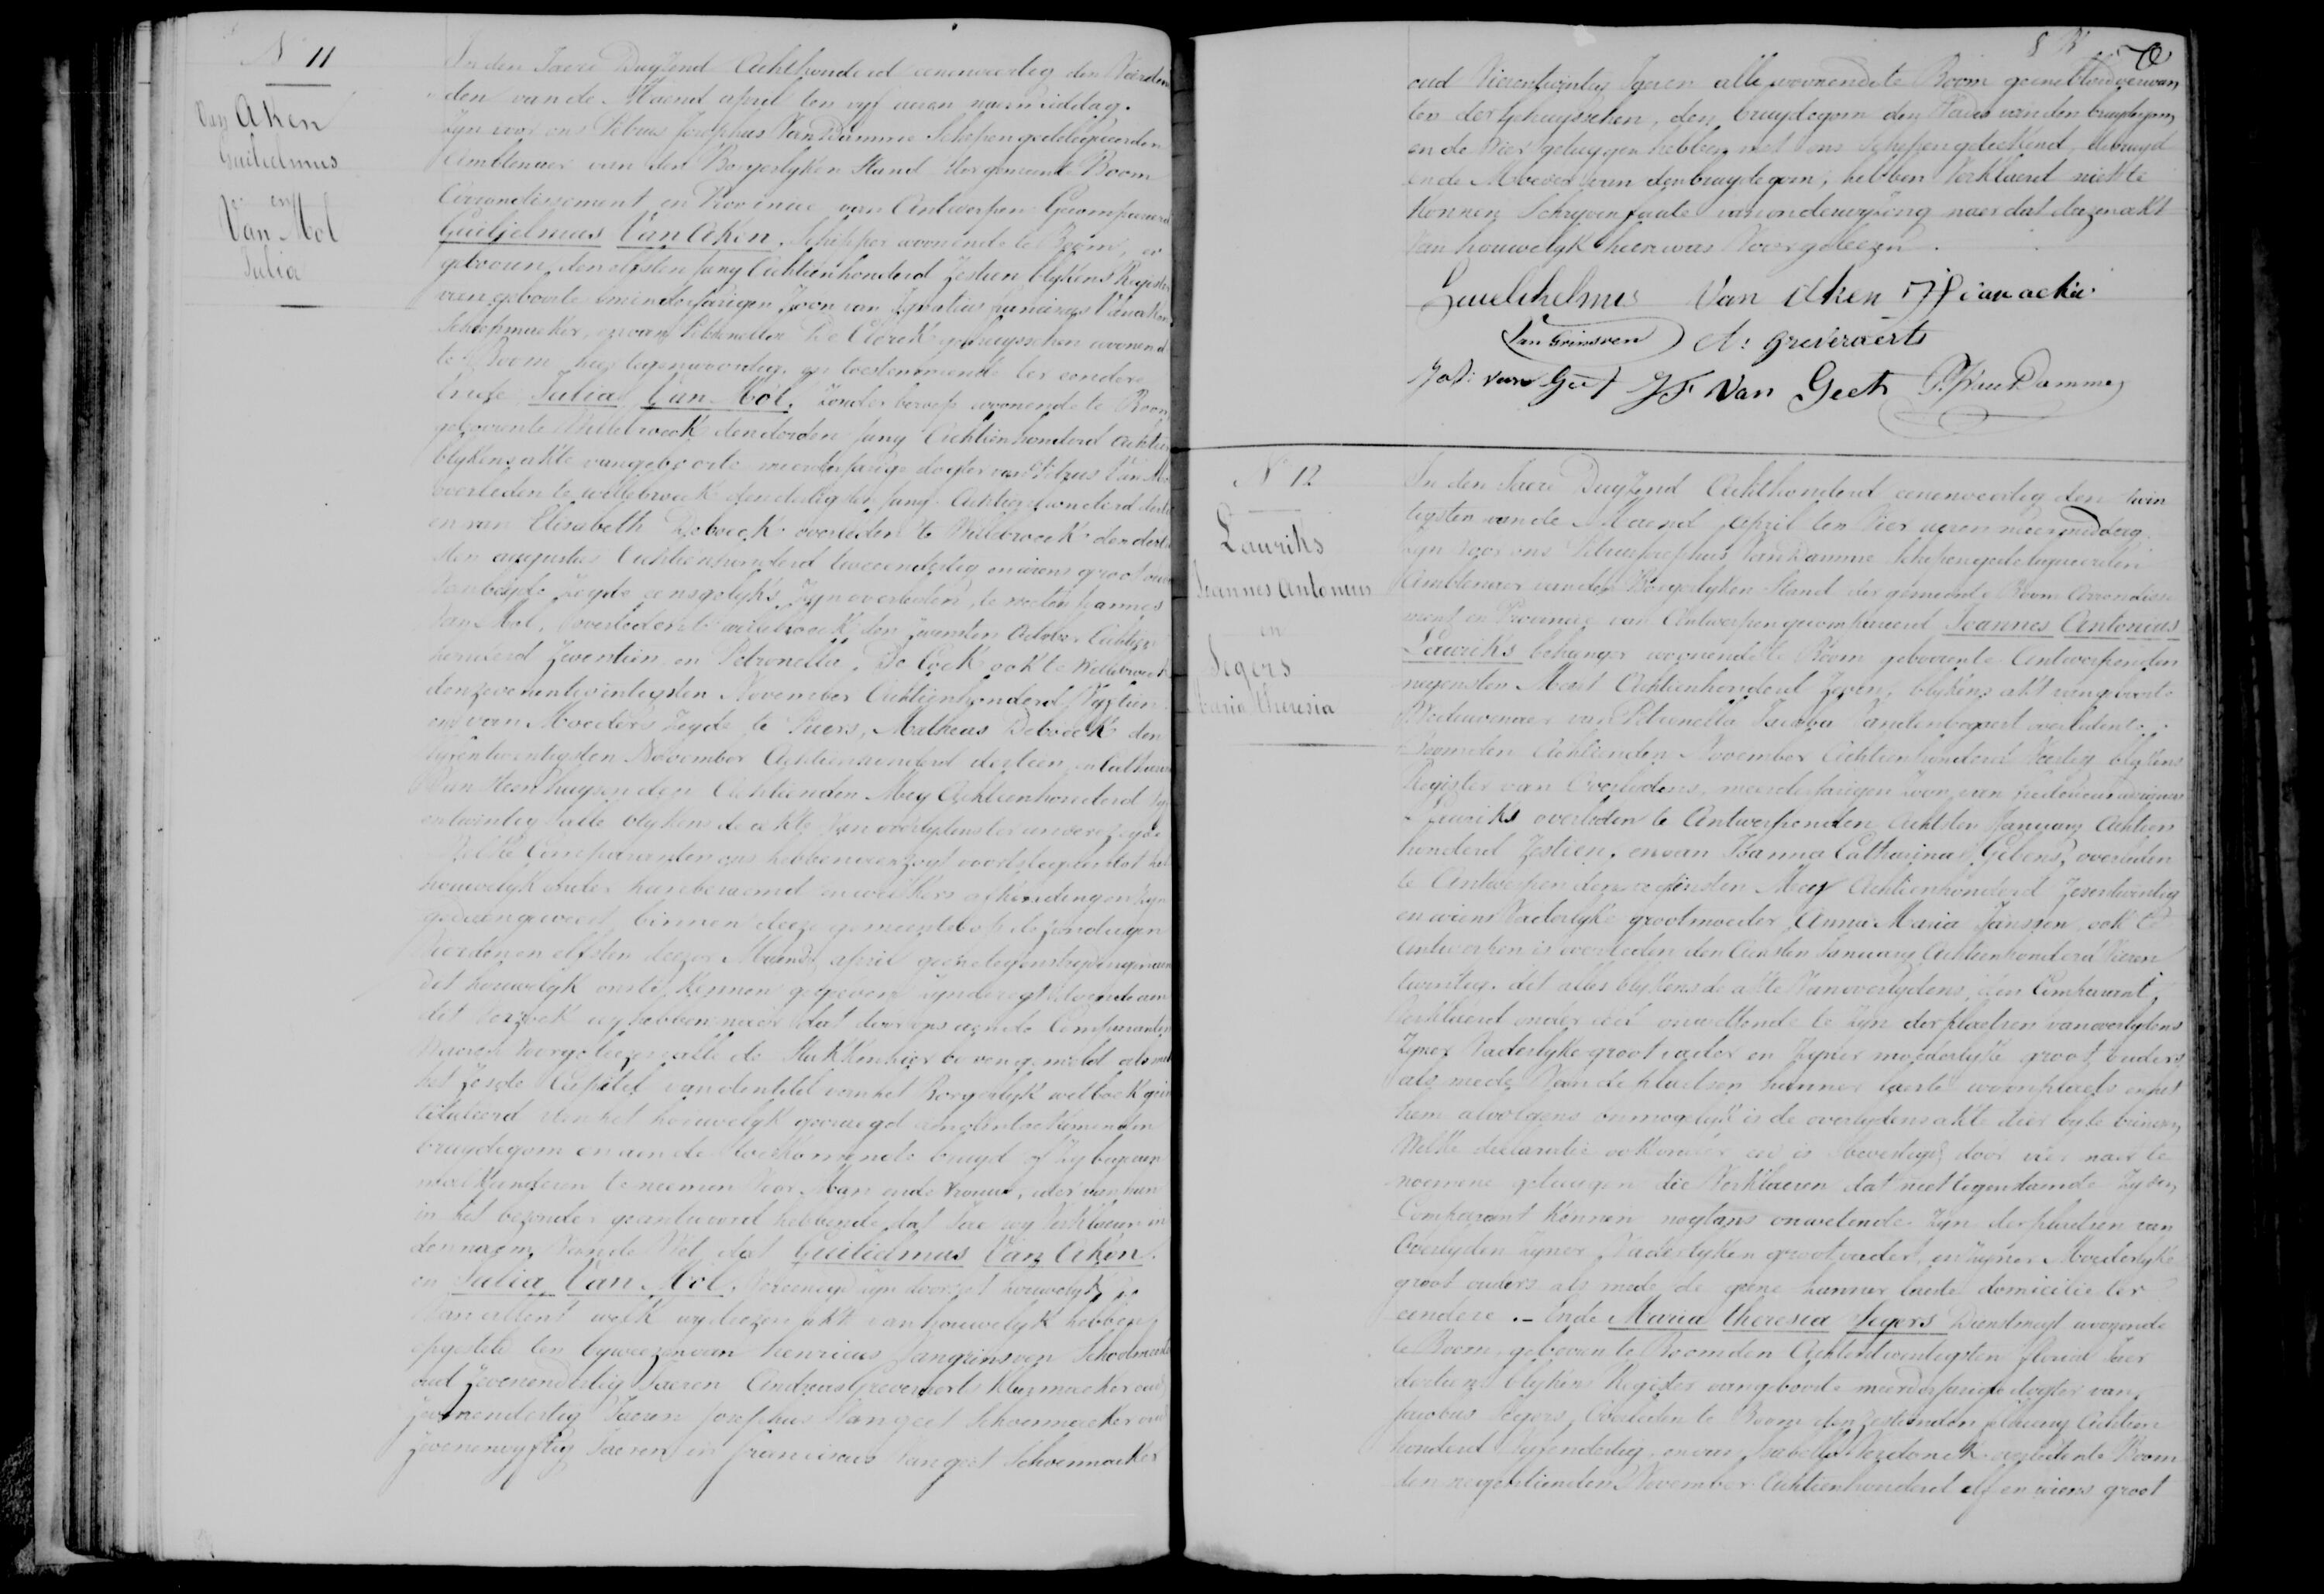 N 11
Van Aken
Guilielmus
en
Van Mol
Julia
In den Jaere Duyzend Achthonderd eenenveertig den
den van de Maend april ten vyf ueren naermiddag.
Zyn voor ons Petrus Josephus Van Damme Schepen gedelegueerden
Ambtenaer van den Borgerlyken Stand der gemeente Boom
Arrondissement en Provincie van Antwerpen Gecompareerd
Guilielmus Van Aken, Schipper woonende te Boom, er
gebooren den elfsten Juny Achtienhonderd Zestien blykens Register
van geboorte minderjarigen Zoon van Ignatius Franciscus Vanaken
Scheepmaeker, en van Petronella De Clerck gehuysschen woonend
te Boom hier tegenwoordig en toestemmende ter eendere
Ende Julia Van Mol, Zonder beroep woonende te Boom
gebooren te Willebroeck den derden Juny Achtienhonderd Achtien
blykens akte van geboorte meerderjarige dogter van Petrus Van Mol
overleden te willebroeck den dertigsten Juny Achtienhonderd
en van Elisabeth Deboeck overleden te Willebroeck den
sten augustus Achtienhonderd tweeendertig en wiens groot ouders
Van beyde Zeyde eensgelyks Zyn overleden, te weeten Joannes
Van Mol, overleden te willebroeck den October Achtien
honderd Zeventien en Petronella De Cock ook te Willebroeck
den zevenentwintigsten November Achtienhonderd Vyftien
en van Moeders Zeyde te Puers, Matheus Deboeck den
vyfentwentigsten November Achtienhonderd dertien en
Van Steenhuysen den Achtienden Mey Achtienhonderd
entwintig alle blykens de akte van overlydens
Welke Comparanten ons hebben verzogt voortstegaen tot het
houwelyk onder hun beraemd en welkers afkondingen Zyn
gedaen geweest binnen deeze gemeente op de zondagen
Vierden en elfsten deezer Maend april geene tegenstrydingen aen
Dit houwelyk ons te kennen gegeven zynde regt doende aen
dit Verzoek wy hebben naer dat door ons aen de Comparanten
Waeren Voorgeleezen alle de Stukken hier boven gemeld als ook
het Zesde Capitel van den titel van het Borgerlyk wetboek
tituleerd Van het houwelyk gevraegd aen den toekomenden
bruydegom en aen de toekomende bruyd of Zy begeeren
malkanderen te neemen Voor Man ende Vrouw, ider van hun
in het bezonder geantwoord hebbende dat Jae wy Verklaeren in
den naem Van de Wet dat Guilielmus Van Aken
en Julia Van Mol, Vereenegd zyn door het houwelyk
Van allent welk wy deezen akt van houwelyk hebben
opgesteld ten bywezen van Henricus Vangrinsven Schoolmeester
oud Zevenendertig Jaeren Andreas Greveraerts kleermaeker oud
Zevenendertig Jaeren Josephus Van geet Schoenmaeker oud
Zevenenvyftig Jaeren en franciscus van geet Schoenmaeker
oud Vierentwintig Jaeren alle woonende te Boom geene bloedverwan
ten der Gehuysschen, den bruydegom den Vader van den bruydegom
en de Vier getuygen hebben met ons Schepen geteekend, de bruyd
en de Moeder van den bruydegom, hebben Verklaerd niet te
Konnen Schryven faute van onderwyzing naer dat deezen akt
Van houwelyk hun was Voorgeleezen.
Guielihelmus Van Aken
Van Grinsven A: Greveraerts
Jos: Van Geet J F Van Geet P. J. Van Damme
N 12
Lauriks
Joannes Antonius
en
Segers
Maria Theresia
In den Jaere Duyzend Achthonderd eenenveertig den twin
tigsten van de Maend April ten Vier ueren naermiddag.
Zyn voor ons Petrus Josephus Van Damme Schepen gedelegueerden
Ambtenaer van den Borgerlyken Stand der gemeente Boom Arrondisse
ment en Provincie van Antwerpen gecompareerd Joannes Antonius
Lauriks behanger woonende te Boom gebooren te Antwerpen den
negensten Meert Achtienhonderd Zeven, blykens akt van geboorte
Weduwenaer van Petronella Jacoba Vandenbogaert overleden te
Boom den Achtienden November Achtienhonderd Veertig blykens
Register van Overlydens, meerderjarigen Zoon van
Lauriks overleden te Antwerpen den Achtsten January Achtien
honderd Zestien, en van Joanna Catharina Gebens, overleden
te Antwerpen den Mey Achtienhonderd Zesentwintig
en wiens Vaderlyke grootmoeder Anna Maria Janssen, ook te
Antwerpen is overleden den January Achtienhonderd Vieren
twintig. dit alles blykens de akte Van overlydens, den Comparant,
Verklaerd onder eed onwettende te Zyn der plaetsen van overlydens
Zyner Vaderlyke groot vader en Zyner moederlyke groot ouders
als mede Van de plaetsen hunner laeste woonplaets en het
hem alvolgens onmogelyk is de overlydens akte hier by te brengen,
Welke declaratie ook onder eed is bevestigd door vier naer te
noemene getuygen die Verklaeren dat niettegenstaende Zy den
Comparant kennen nogtans onwetende Zyn der plaetsen van
Overlyden Zyner Vaderlyken groot vader en Zyner Moederlyke
groot ouders als mede de geene hunner laeste domicilie ter
eendere. – Ende Maria Theresia Segers Dienstmeyt woonende
te Boom, gebooren te Boom den Achtentwentigsten floreal Jaer
dertien blykens Register van geboorte meerderjarige dogter van
Jacobus Segers, Overleden te Boom den Zestienden January Achtien
honderd Vyfendertig en van Isabella Verdonck overleden te Boom
den negentienden November Achtienhonderd elf en wiens groot